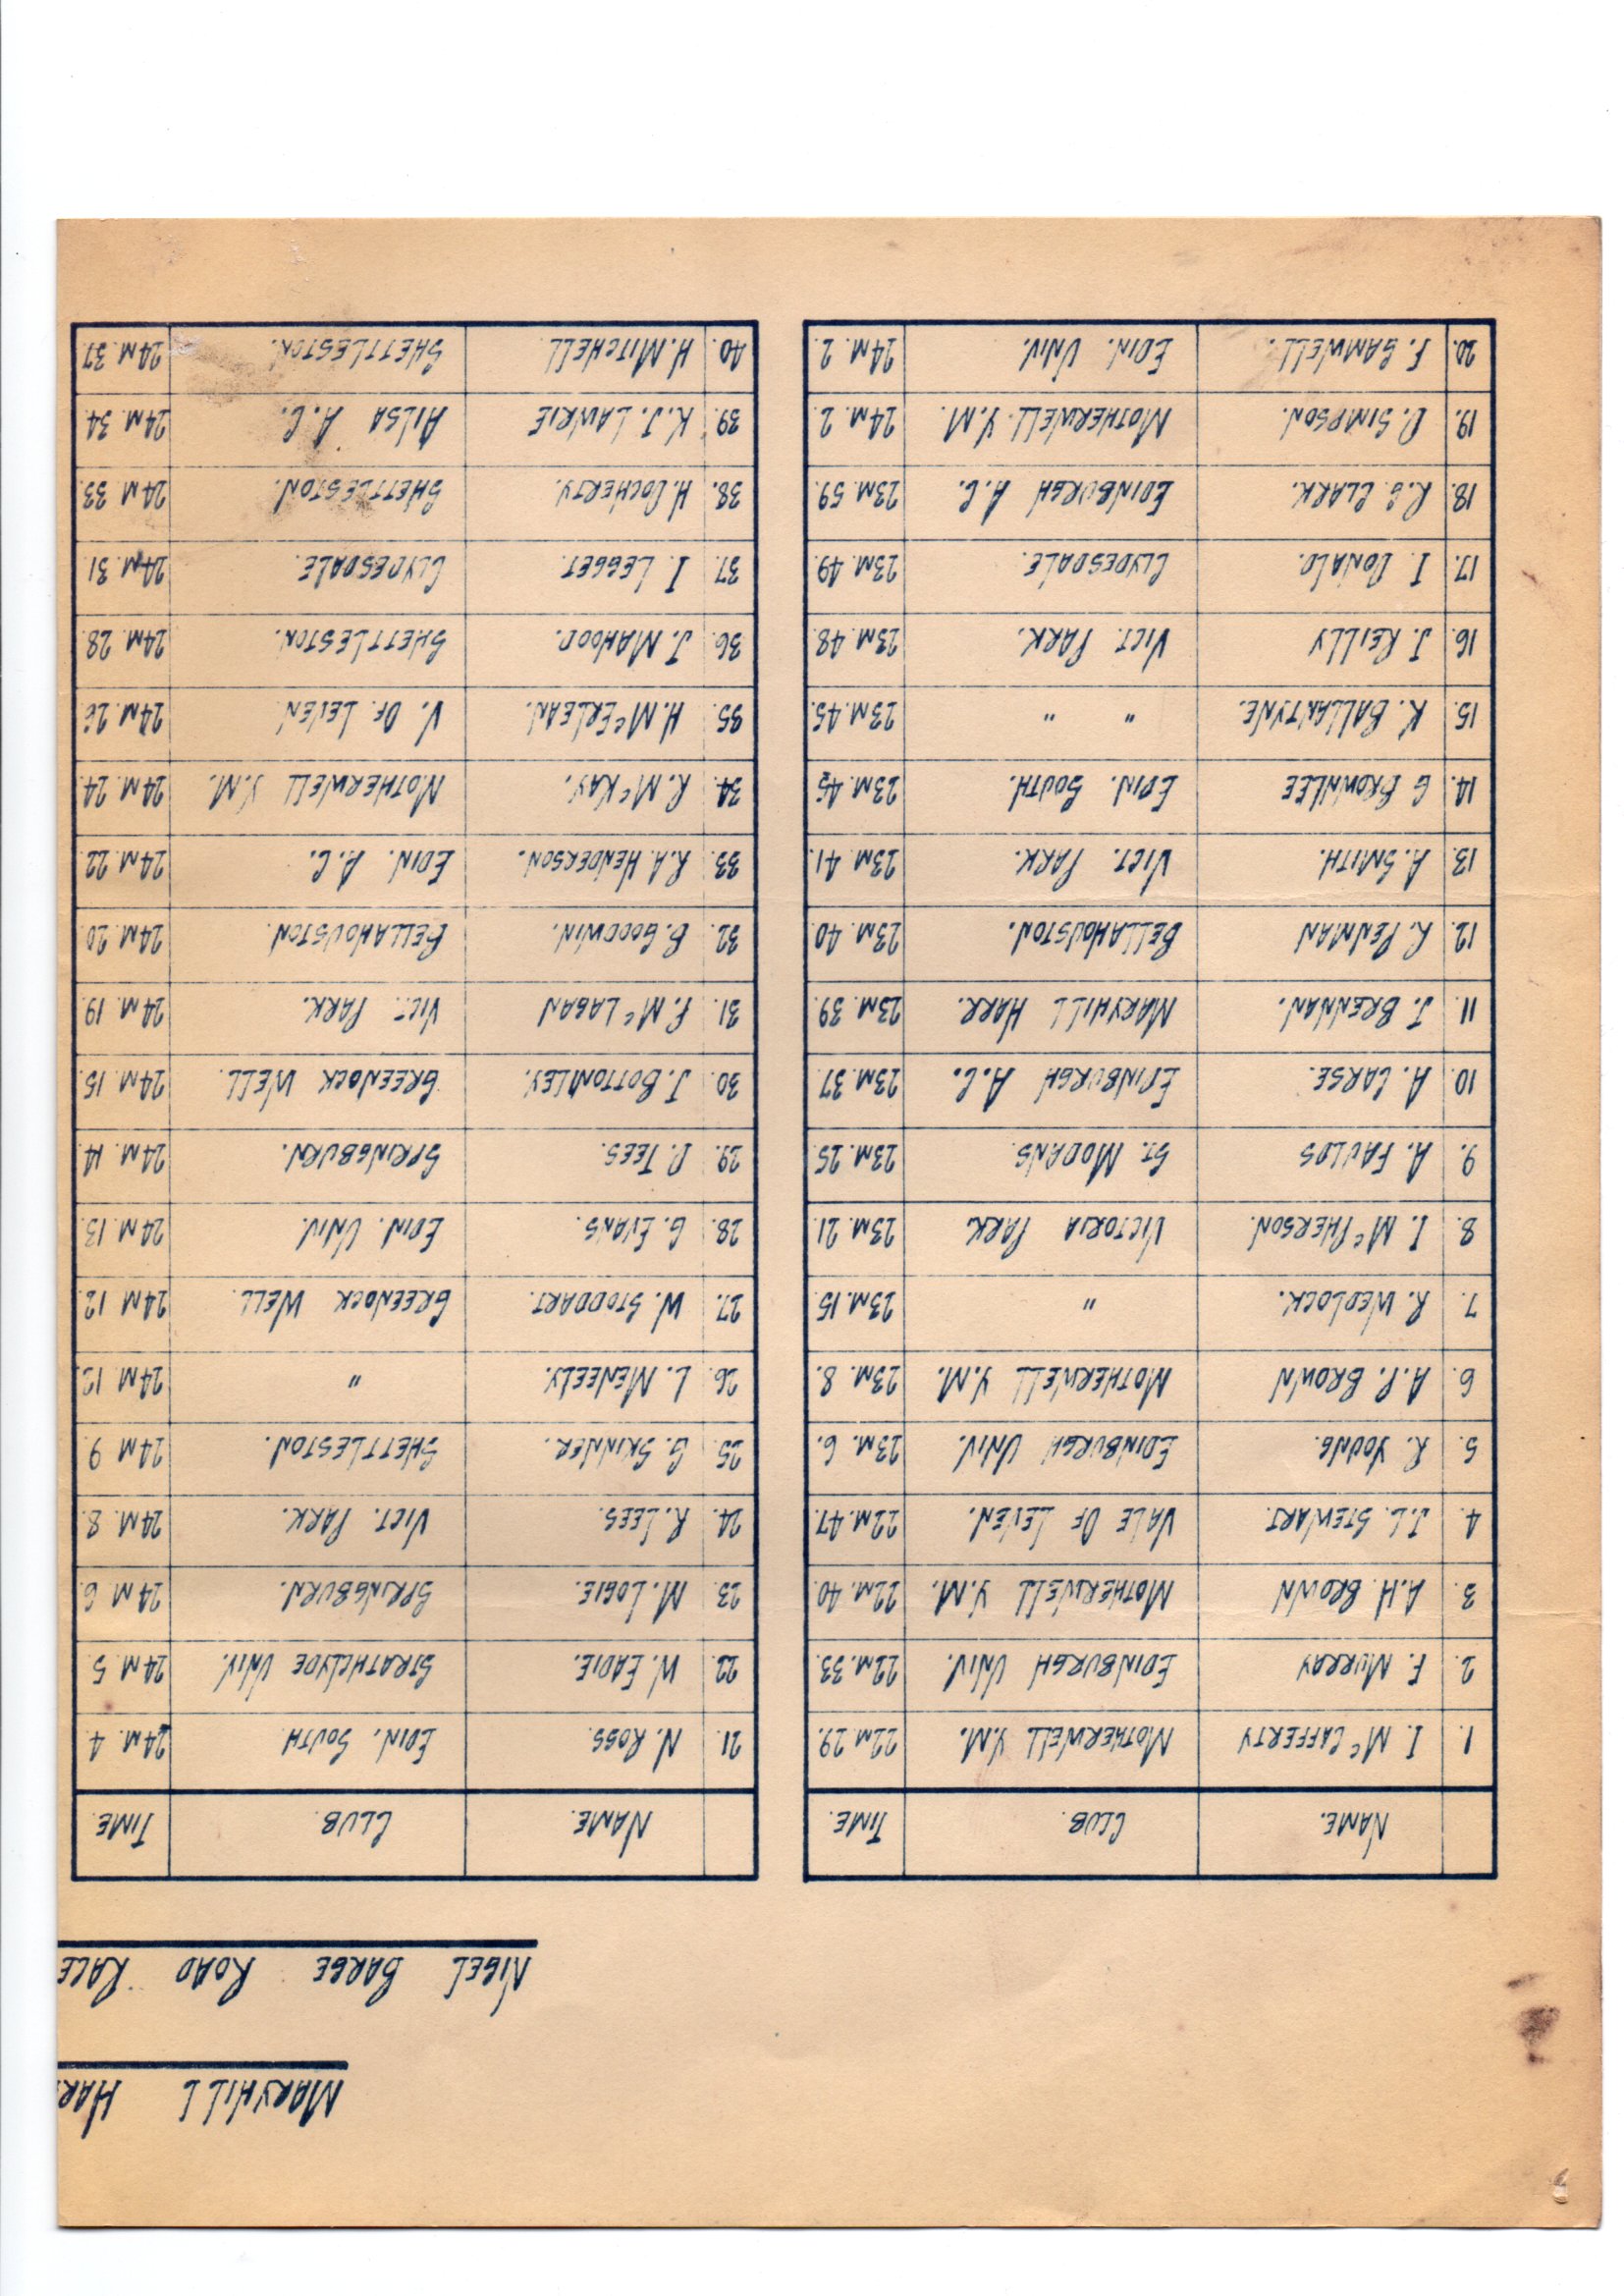 MARYHILL HAR
NIGEL BARGE ROAD RACE
NAME. CLUB. TIME.
1. I. McCAFFERTY MOTHERWELL Y.M. 22M. 29.
2. F. MURRAY EDINBURGH UNIV. 22M. 33.
3. A.H. BROWN MOTHERWELL Y.M. 22M. 40.
4. J.L. STEWART. VALE OF LEVEN. 22M. 47.
5. R. YOUNG. EDINBURGH UNIV. 23M. 6.
6. A.P. BROWN MOTHERWELL Y.M. 23M. 8.
7. R. WEDLOCK. " 23M. 15
8. I. McPHERSON. VICTORIA PARK. 23M. 21
9. A. FAULDS ST. MODANS 23M. 25
10. A. CARSE. EDINBURGH A.C. 23M. 37
11. J. BRENNAN. MARYHILL HARR. 23M. 39
12. R. PENMAN BELLAHOUSTON. 23M. 40
13. A. SMITH. VICT. PARK. 23M. 41.
14. G BROWNLEE EDIN. SOUTH. 23M. 45
15. K. BALLANTYNE. " " 23M. 45.
16. J. REILLY VICT. PARK. 23M. 48.
17. I. DONALD. CLYDESDALE. 23M. 49
18. R.G. CLARK. EDINBURGH A.C. 23M. 59
19. D. SIMPSON. MOTHERWELL Y.M. 24M. 2
20. F. GAMWELL. EDIN. UNIV. 24M. 2.
NAME. CLUB. TIME.
21. N. ROSS EDIN. SOUTH 24M. 4.
22. W. EADIE. STRATHCLYDE UNIV. 24M. 5
23. M. LOGIE. SPRINGBURN. 24M 6.
24. R. LEES. VICT. PARK. 24M. 8.
25. G. SKINNER. SHETTLESTON. 24M 9
26. L. MENEELY. " 24M 12.
27. W. STODDART. GREENOCK WELL. 24M 12.
28. G. EVANS. EDIN. UNIV. 24M. 13.
29. P. TEES. SPRINGBURN. 24M. 14.
30. J. BOTTOMLEY. GREENOCK WELL. 24M. 15.
31. F. McLAGAN VICT. PARK. 24M 19.
32. B. GOODWIN. BELLAHOUSTON. 24M. 20
33. R.A. HENDERSON. EDIN. A.C. 24M. 22.
34. R. McKAY. MOTHERWELL Y.M. 24M 24.
35. H. McERLEAN. V. OF LEVEN. 24M. 26
36. J. MAHOOD. SHETTLESTON. 24M. 28
37. I. LEGGET. CLYDESDALE. 24M. 31
38. H. DOCHERTY. SHETTLESTON. 24M 33.
39. K.J. LAWRIE AILSA A.C. 24M. 34
40. H. MITCHELL SHETTLESTON. 24M. 37.